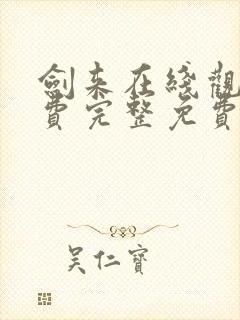 劍來在綫觀
費完整免費
吴仁寶